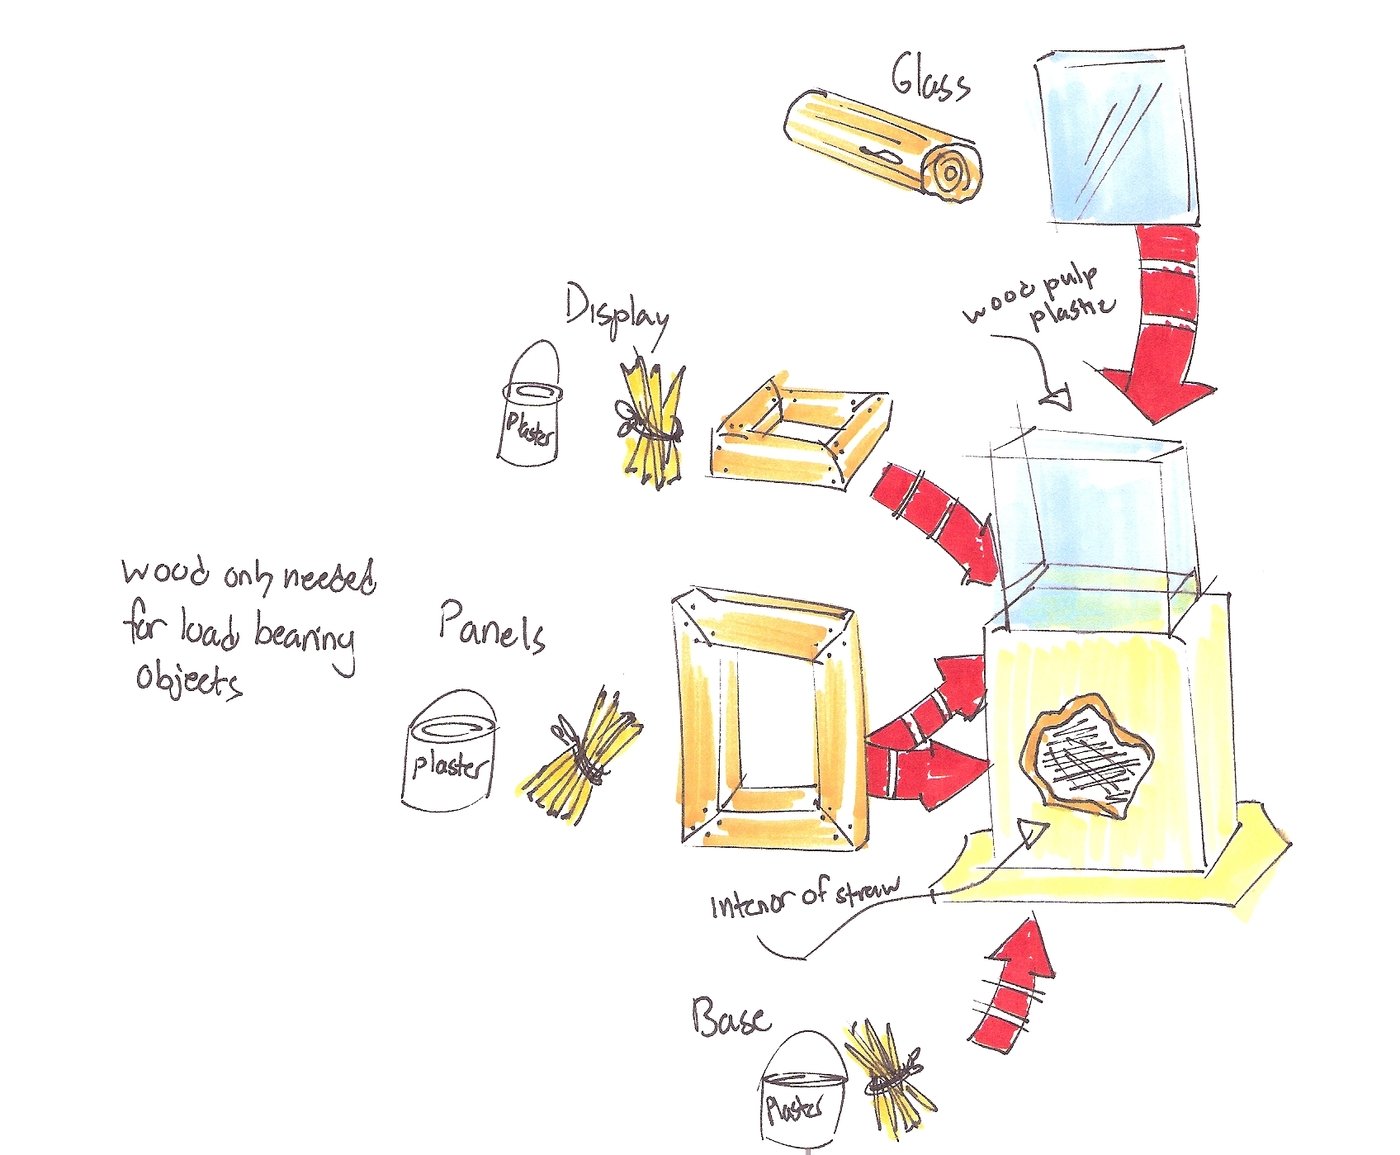 Glass
wood pulp
plastic
Display
Plaster
wood only needed
for load bearing
objects
Panels
plaster
Interior of straw
Base
Plaster